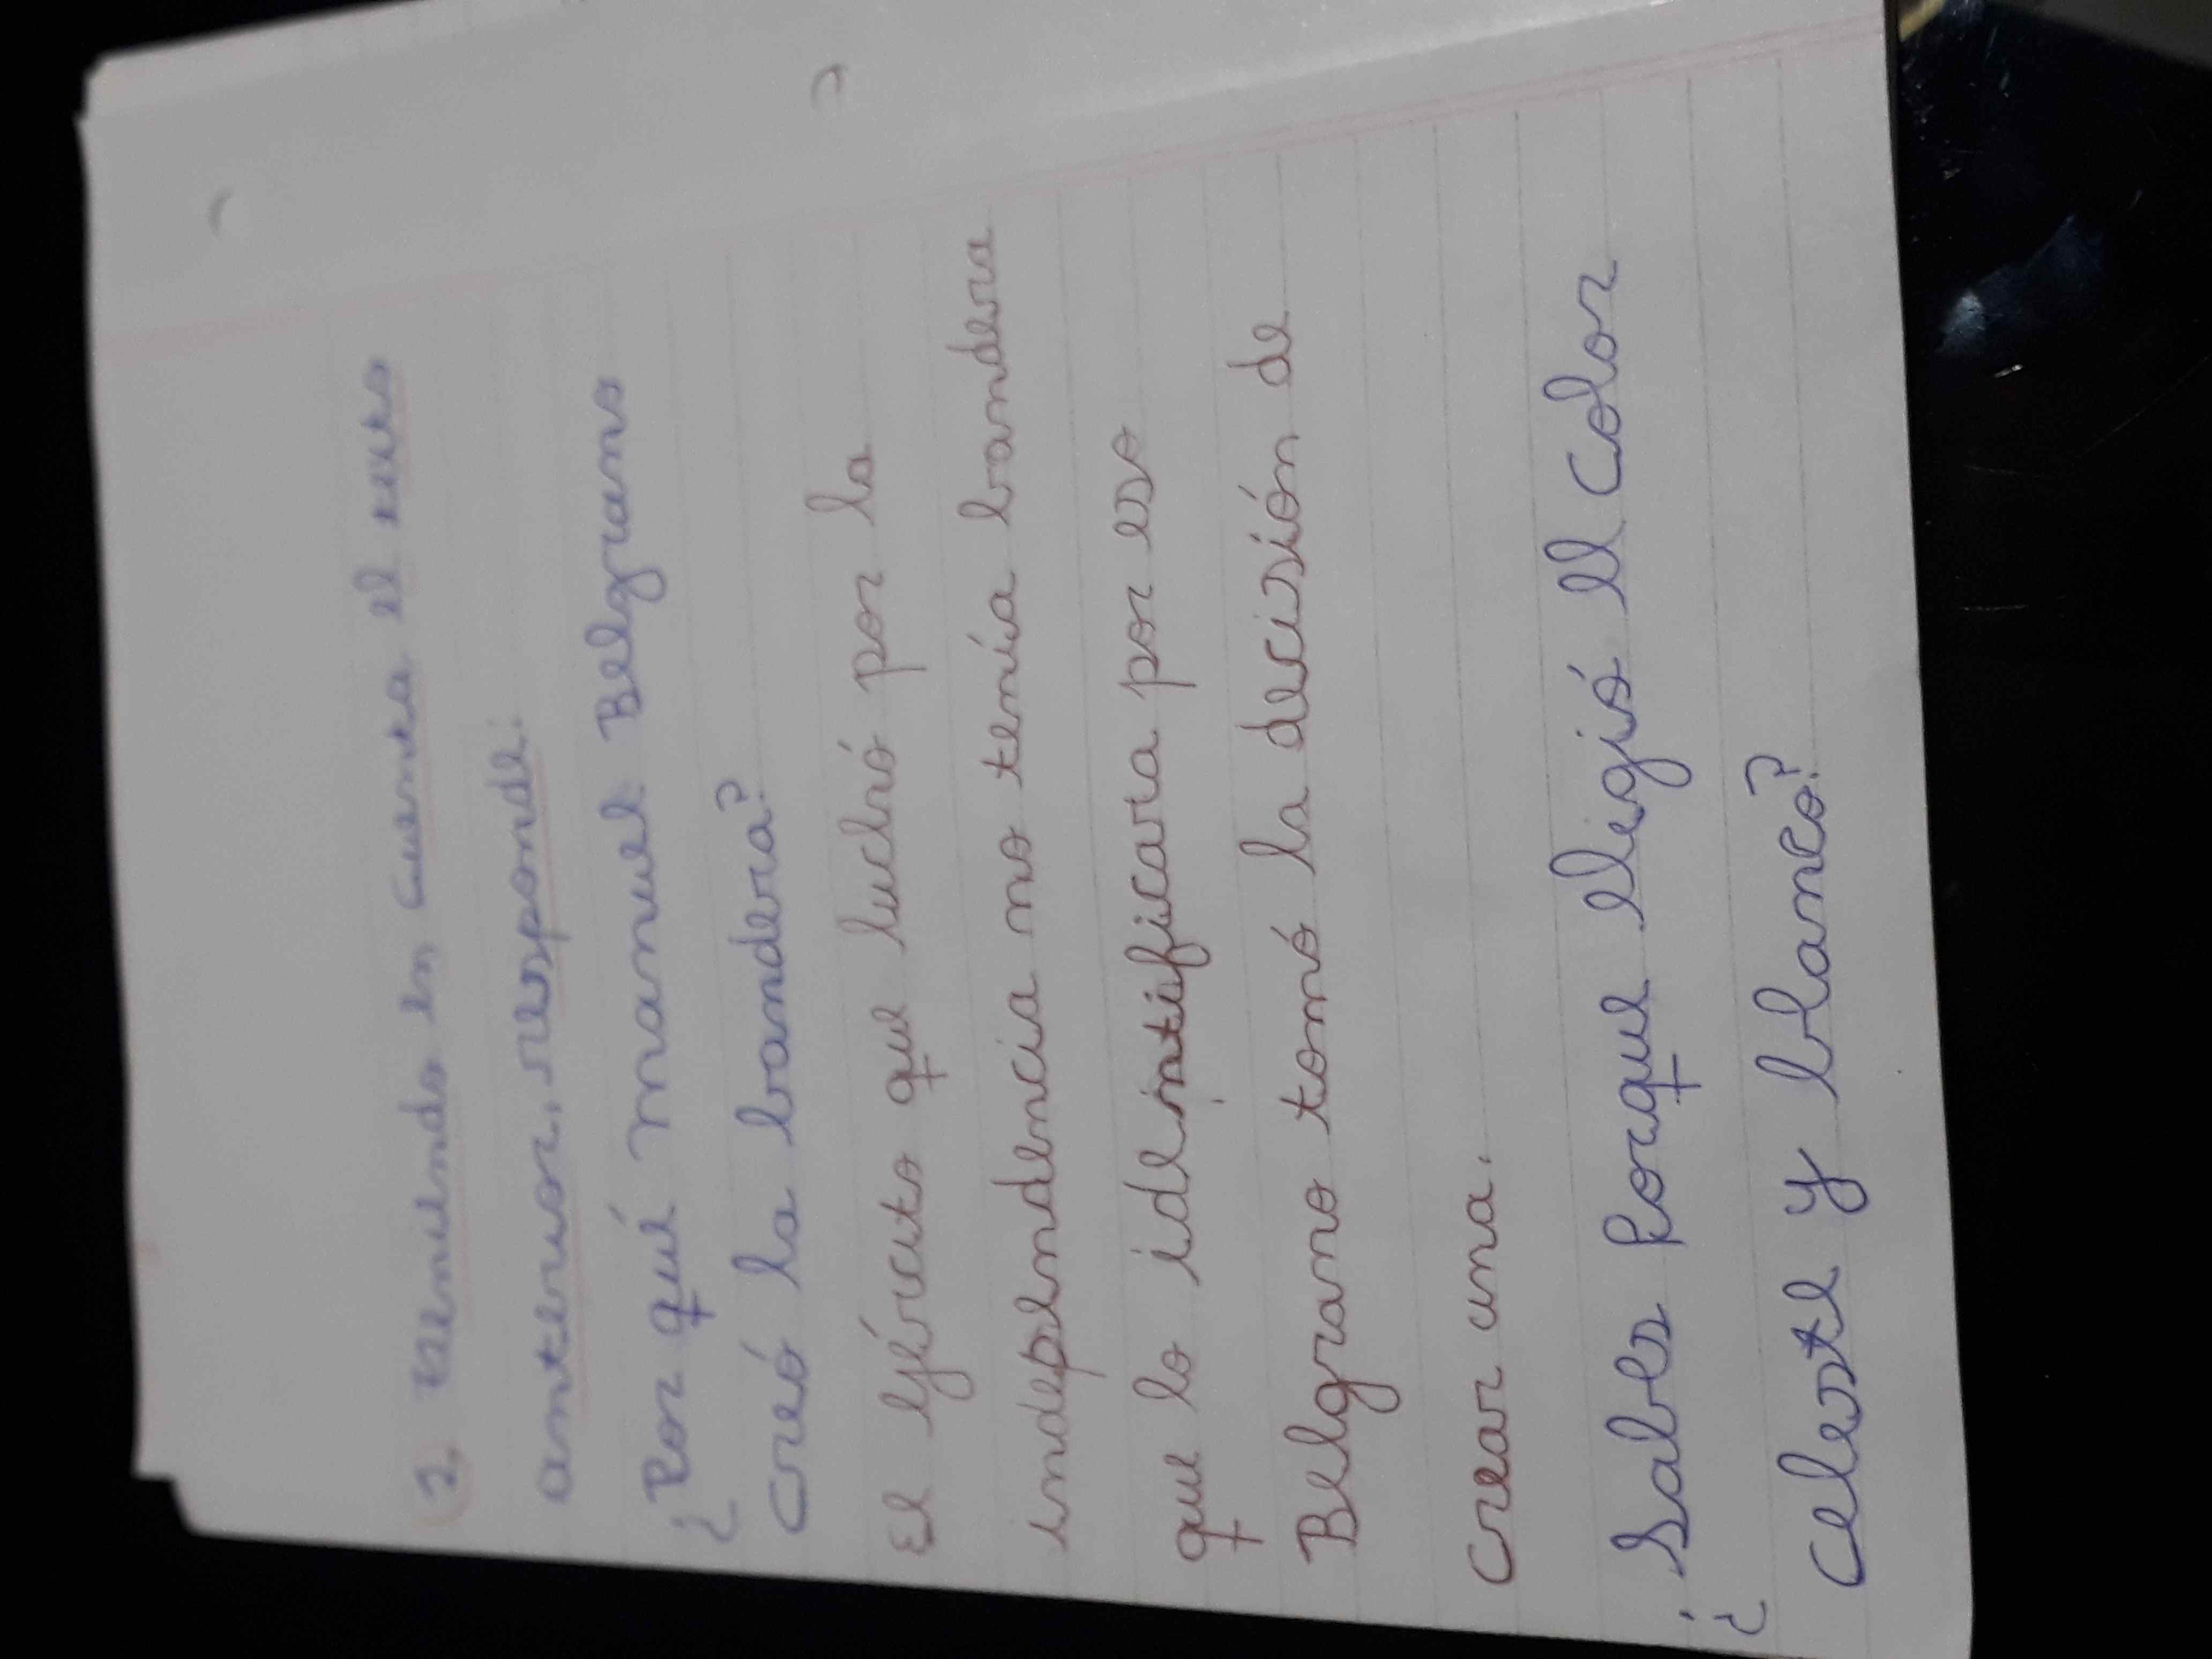 2. Teniendo en cuenta el texto
anterior, respondé:
¿Por qué Manuel Belgrano
creó la bandera?
El ejército que luchó por la
independencia no tenía bandera
que lo identificara por eso
Belgrano tomó la decisión de
crear una.
¿Sabes porque eligió el color
celeste y blanco?